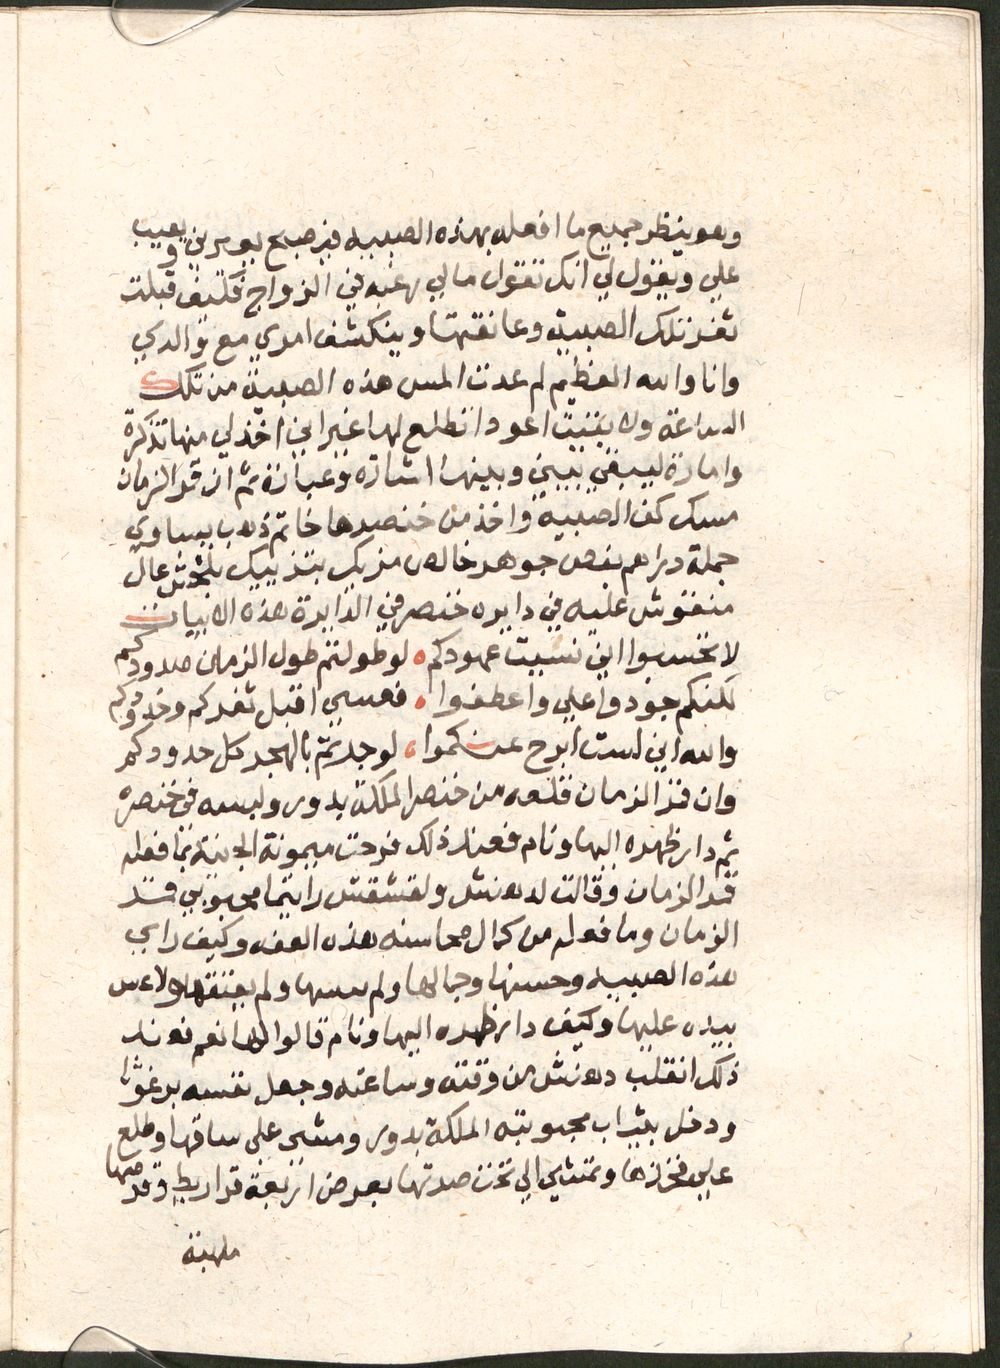 وهو ينظر جميع ما افعله بهذه الصبيه فيصبح يوبخني ويعيب
علي ويقول لي انك تقول مالي رغبه في الزواج فكيف قبلت
ثغر تلك الصبية وعانقتها وينكشف امري مع والدي
وانا والله العظيم لم عدت المس هذه الصبية من تلك
الساعة ولا بقيت اعود اتطلع لها غير اني اخذ لي منها تذكرة
وامارة ليبقي بيني وبينها اشاره وعبارة ثم ان قمر الزمان
مسك كف الصبية واخذ من خنصرها خاتم ذهب يساوي
جملة دراهم بفص جوهر خالص مزيك بتزييك عال
منقوش عليه في دايره خنصر في الدايرة هذه الابيات
لا تحسبوا اني نسيت عهودكم ه لو طولتم طول الزمان صدودكم
لكنكم جودوا علي واعطفوا ه فعسي اقبل ثغركم وخدودكم
والله اني لست ابرح عنكموا ه لو جزتم بالهجر كل حدودكم
وان قمر الزمان قلعه من خنصر الملكة بدور ولبسه في خنصره
ثم دار ظهره اليها ونام فعند ذلك فرحت ميمونة الجنية بما فعله
قمر الزمان وقالت لدهنش ولقشقش رايتما محبوبي قمر
الزمان وما فعله من كمال محاسنه هذه العفه وكيف راي
هذه الصبيه وحسنها وجمالها ولم يبسها ولم يعنقها ولا مس
بيده عليها وكيف دار ظهره اليها ونام قالوا لها نعم فعند
ذلك انقلب دهنش من وقته وساعته وجعل نفسه برغوثا
ودخل بثياب محبوبته الملكة بدور ومشي علي ساقها وطلع
علي فخذها وتمشي الي تحت صرتها بعرض اربعة قراريط وقرصها